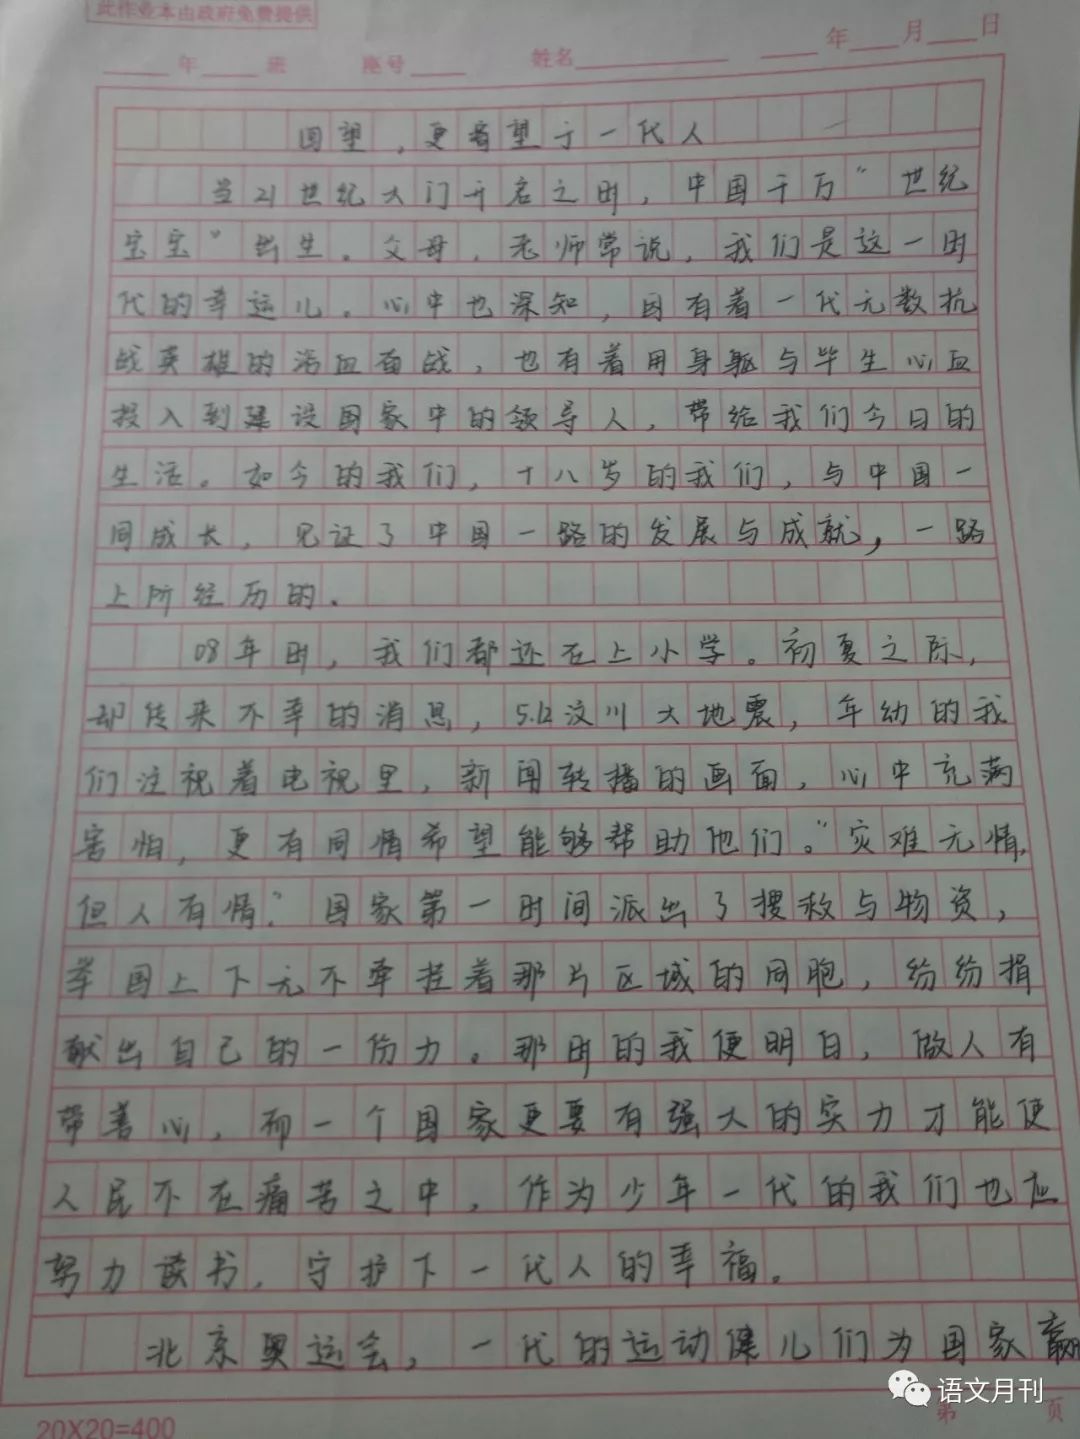 此作业本由政府免费提供
年 班 座号 姓名 年 月 日
回望，更看望于一代人
当21世纪大门开启之时，中国千万“世纪
宝宝”出生。父母，老师常说，我们是这一时
代的幸运儿。心中也深知，因有着一代无数抗
战英雄的浴血奋战，也有着用身躯与毕生心血
投入到建设国家中的领导人，带给我们今日的
生活。如今的我们，十八岁的我们，与中国一
同成长，见证了中国一路的发展与成就，一路
上所经历的.
08年时，我们都还在上小学。初夏之际，
却传来不幸的消息，5.12汶川大地震，年幼的我
们注视着电视里，新闻转播的画面，心中充满
害怕，更有同情希望能够帮助他们。“灾难无情，
但人有情.”国家第一时间派出了搜救与物资，
举国上下无不牵挂着那片区域的同胞，纷纷捐
献出自己的一份力。那时的我便明白，做人有
带善心，而一个国家更要有强大的实力才能使
人民不在痛苦之中，作为少年一代的我们也应
努力读书，守护下一代人的幸福。
北京奥运会，一代的运动健儿们为国家赢
语文月刊
20X20=400
第 页